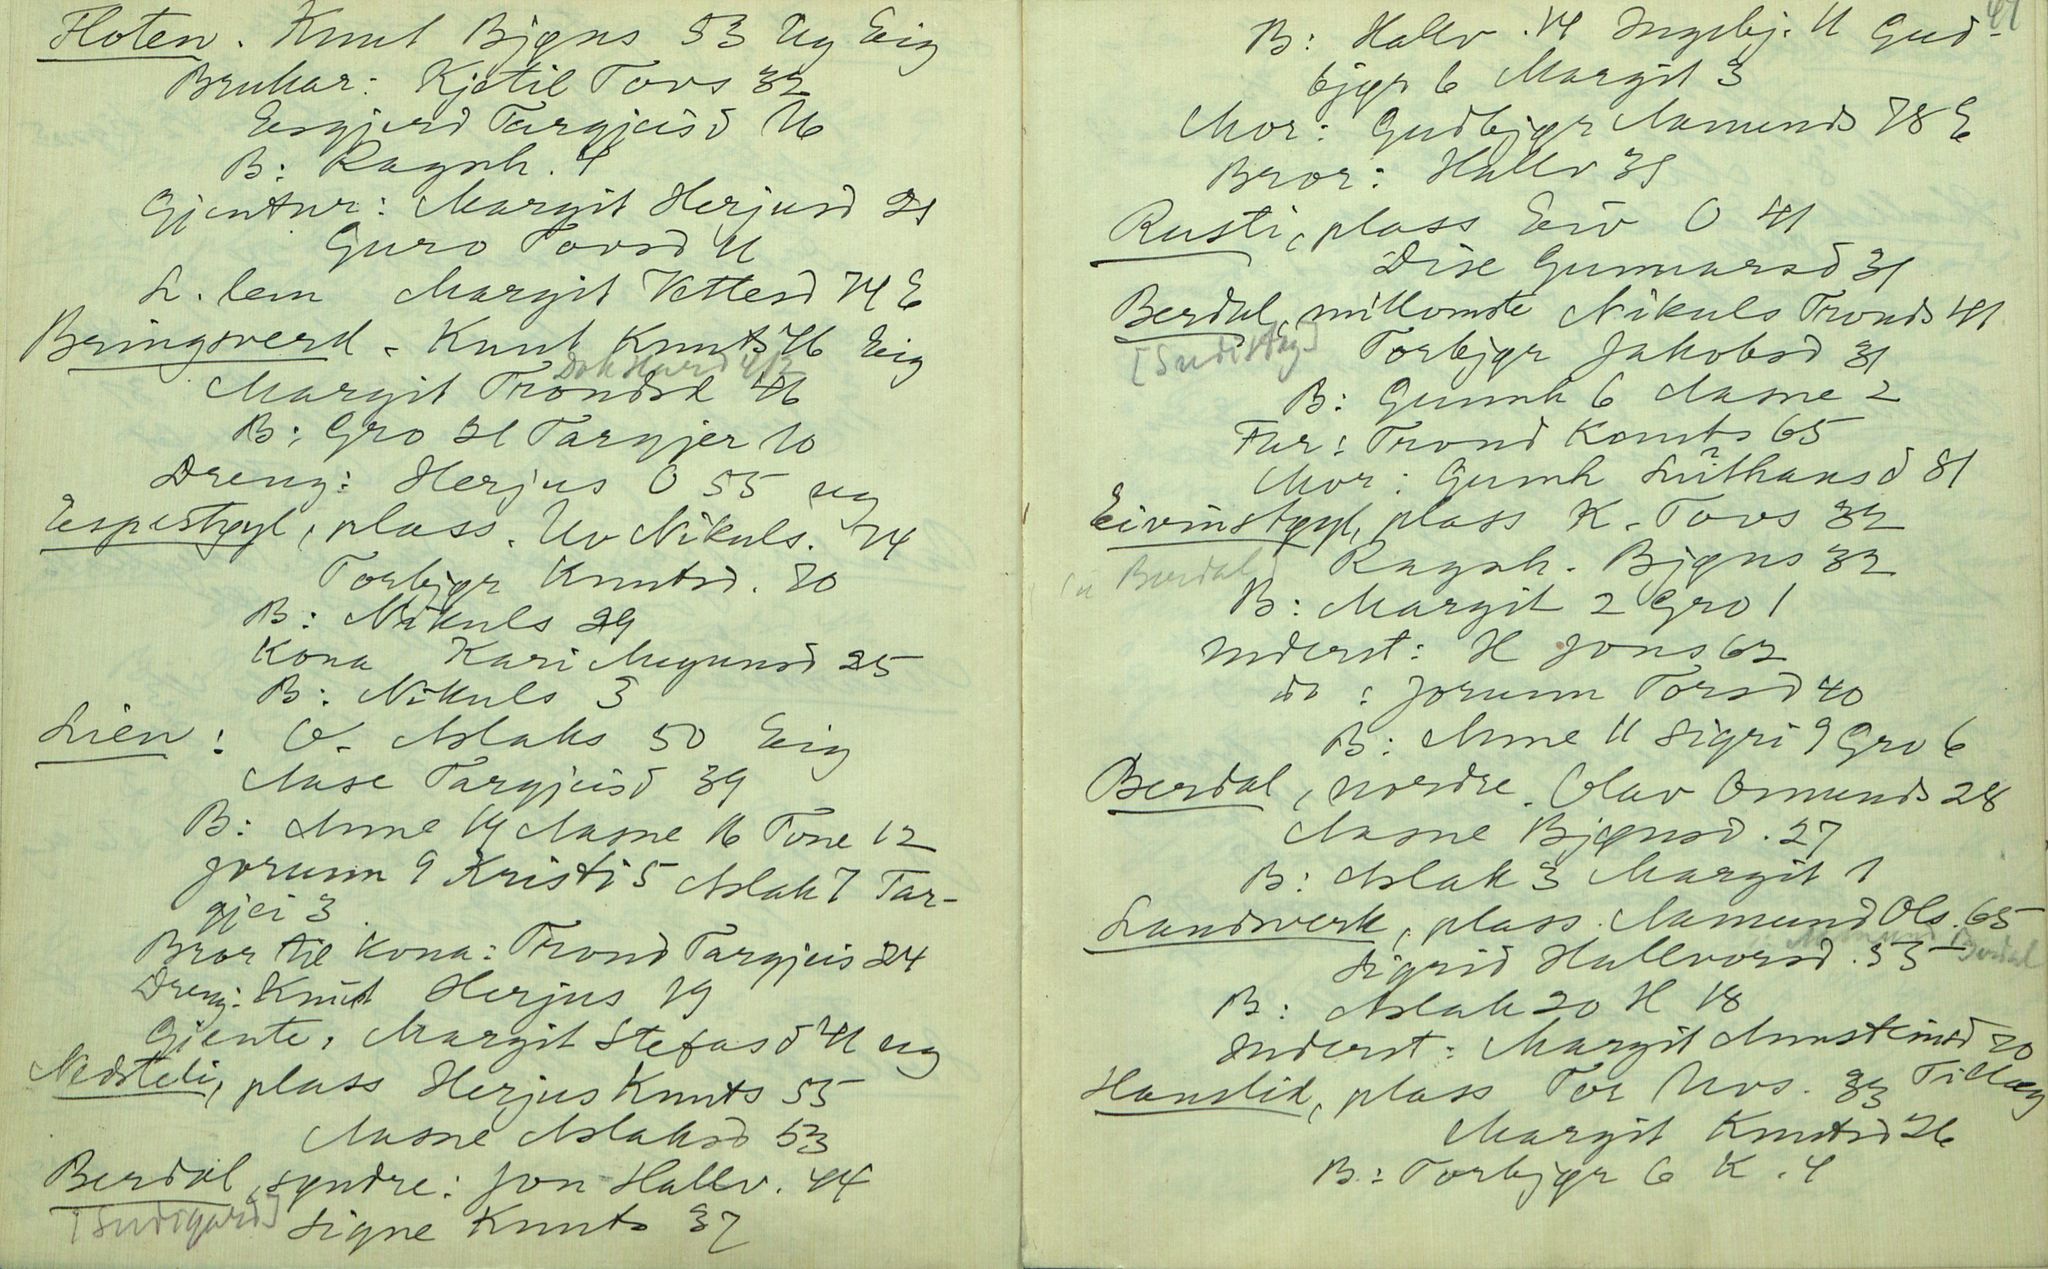 Floten. Knut Bjøns 53 Ug Eig
Brukar: Kjetil Tovs 32
Engjerd Targjeisd 26
B: Ragnh. 4
Gjentur: Margit Herjusd 21
Guro Tovsd 11
L. lem Margit Vettesd 74 E
Bringsverd. Knut Knuts 46 Eig
Margit Trondsd 46
B: Gro 21 Targjer 10
Dreng: Herjus O 55 ug
Espestøyl, plass. Uv Nikuls. 74
Torbjør Knutsd. 70
B: Nikuls 29
Kona Kari Mugunsd 25
B: Nikuls 3
Lien: O. Aslaks 50 Eig
Aase Targjeisd 39
B: Anne 19 Aasne 16 Tone 12
Jorunn 9 Kristi 5 Aslak 7 Tar-
gjei 3
Bror til kona: Trond Targjeis 24
Dreng: Knut Herjus 19
Gjente: Margit Stefasd 41 ug
Nedsteli, plass Herjus Knuts 55
Aasne Aslaksd 53
Berdal, syndre: Jon Hallv. 44
[Sudigard] Signe Knuts 37
B: Hallv. 14 Ingebj. 11 Gud-
bjør 6 Margit 3
Mor: Gudbjør Aamunds 78 E
Bror: Hallv 39
Rusti, plass Eiv O 41
Dise Gunnarsd 31
Berdal, millomte Nikuls Tronds 41
[Sudistøg] Torbjør Jakobsd 31
B: Gunnh 6 Aasne 2
Far: Trond Knuts 65
Mor: Gunnh 81
Eivinstøyl, plass K. Tovs 32
Berdal] Ragnh. Bjøns 32
B: Margit 2 Gro 1
Inderst: H Jons 62
do: Jorunn Torsd 40
B: Anne 11 Sigri 9 Gro 6
Berdal, nordre. Olav Omunds 28
Aasne Bjønsd. 27
B: Aslak 3 Margit 1
Landsverk, plass. Aamund Ols. 65
Aamund Berdal
Sigrid Hallvorsd. 55
B: Aslak 20 H 18
Inderst: Margit Aunsteinsd 70
Hauslid, plass Tor Uvs. 33 Tillæg
Margit Knutsd 26
B: Torbjør 6 K. 4